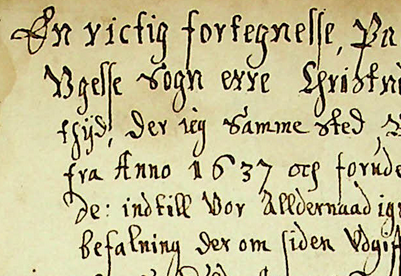 En rictig fortegnelse, Pa
Vgelse Sogn erre Christn
thijd, der ieg Samme sted,
fra Anno 1637 och forude
de: indtill Vor Alldernaadigs
befalning der om siden Vdgif